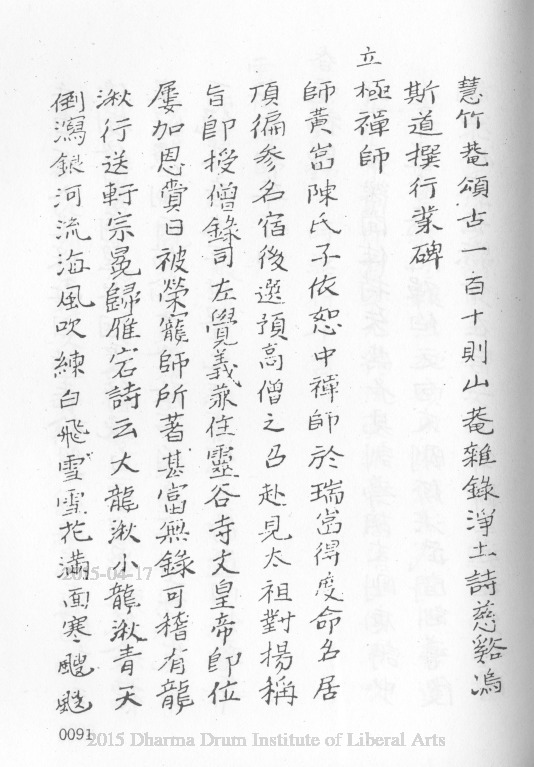 慧竹菴頌古一百十則山菴雜錄淨土詩慈谿溤
斯道撰行業碑
立極禪師
師黃嵓陳氏子依恕中禪師於瑞嵓得度命名居
頂徧參名宿後選預高僧之召赴見太祖對揚稱
旨即授僧錄司左覺義兼住靈谷寺文皇帝即位
屢加恩賞日被榮寵師所著甚富無錄可稽有龍
湫行送軒宗冕歸雁宕詩云大龍湫小龍湫青天
倒瀉銀河流海風吹練白飛雪雪花滿面寒颼颼
2015-04-17
0091
2015 Dharma Drum Institute of Liberal Arts